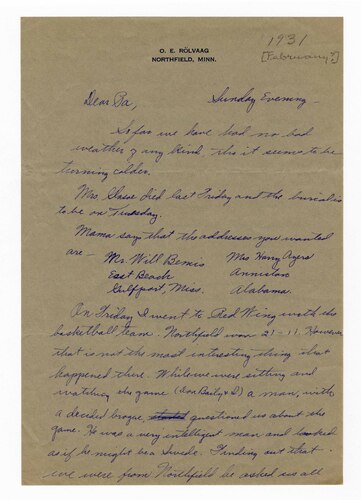 O. E. RÖLVAAG
NORTHFIELD, MINN.
1931
[February?]
Dear Pa,
Sunday Evening -
So far we have had no bad
weather of any kind tho it seems to be
turning colder.
Mrs. died last Friday and the burial is
to be on Tuesday.
Mama says that the addresses you wanted
are -
Mr. Will Bemis
East Beach
Gulfport, Miss.
Mrs Harry Ayers
Anniston
Alabama.
On Friday I went to Red Wing with the
basketball team. Northfield won 21-11. However
that is not the most interesting thing that
happened there. While we were sitting and
watching the game (Baily + I) a man, with
a decided brogue, questioned us about the
game. He was a very intelligent man and looked
as if he might be a Swede. Finding out that
we were from Northfield he asked us all